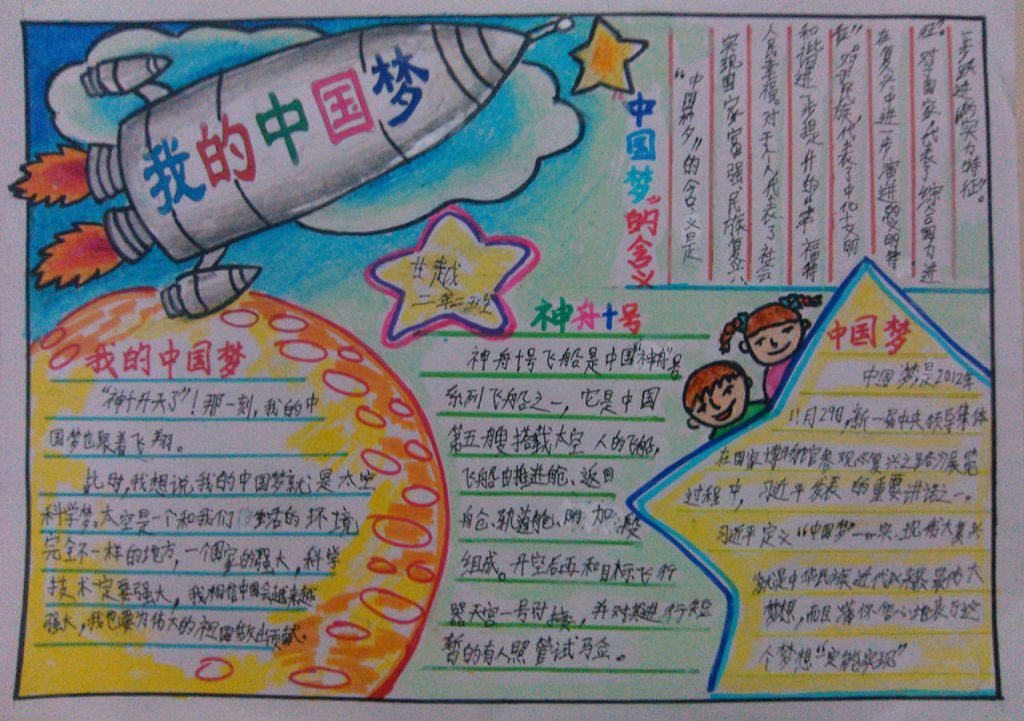 我的中国梦
"中国梦"的含义
"中国梦"的含义是
实现国家富强、民族复兴、
人民幸福。对于个人代表了社会
和谐进一步提升的"幸福特
征"对于民族代表了中华文明
在复兴中进一步演进的"文明特
征"。对于国家代表了综合国力进
一步跃进的"实力特征"。
甘越
二年二班
我的中国梦
"神十升天了"！那一刻，我的中
国梦也跟着飞翔。
此时，我想说，我的中国梦就是太空
科学梦。太空是一个和我们生活的环境
完全不一样的地方，一个国家的强大，科学
技术一定要强大，我相信中国会越来越
强大，我也要为伟大的祖国做出贡献。
神舟十号
神舟十号飞船是中国"神舟"号
系列飞船之一，它是中国
第五艘搭载太空人的飞船，
飞船由推进舱、返回
舱、轨道舱、附加段
组成。升空后再和目标飞行
器天宫一号对接，并对其进行短
暂的有人照管试
中国梦
中国梦是2012年
11月29日，新一届中央领导集体
在国家博物馆参观《复兴之路》展览
过程中，习近平发表的重要讲话之一。
习近平定义"中国梦"——实现伟大复兴
就是中华民族近代以来最伟大
梦想，而且满怀信心地表示这
个梦想"定能实现"